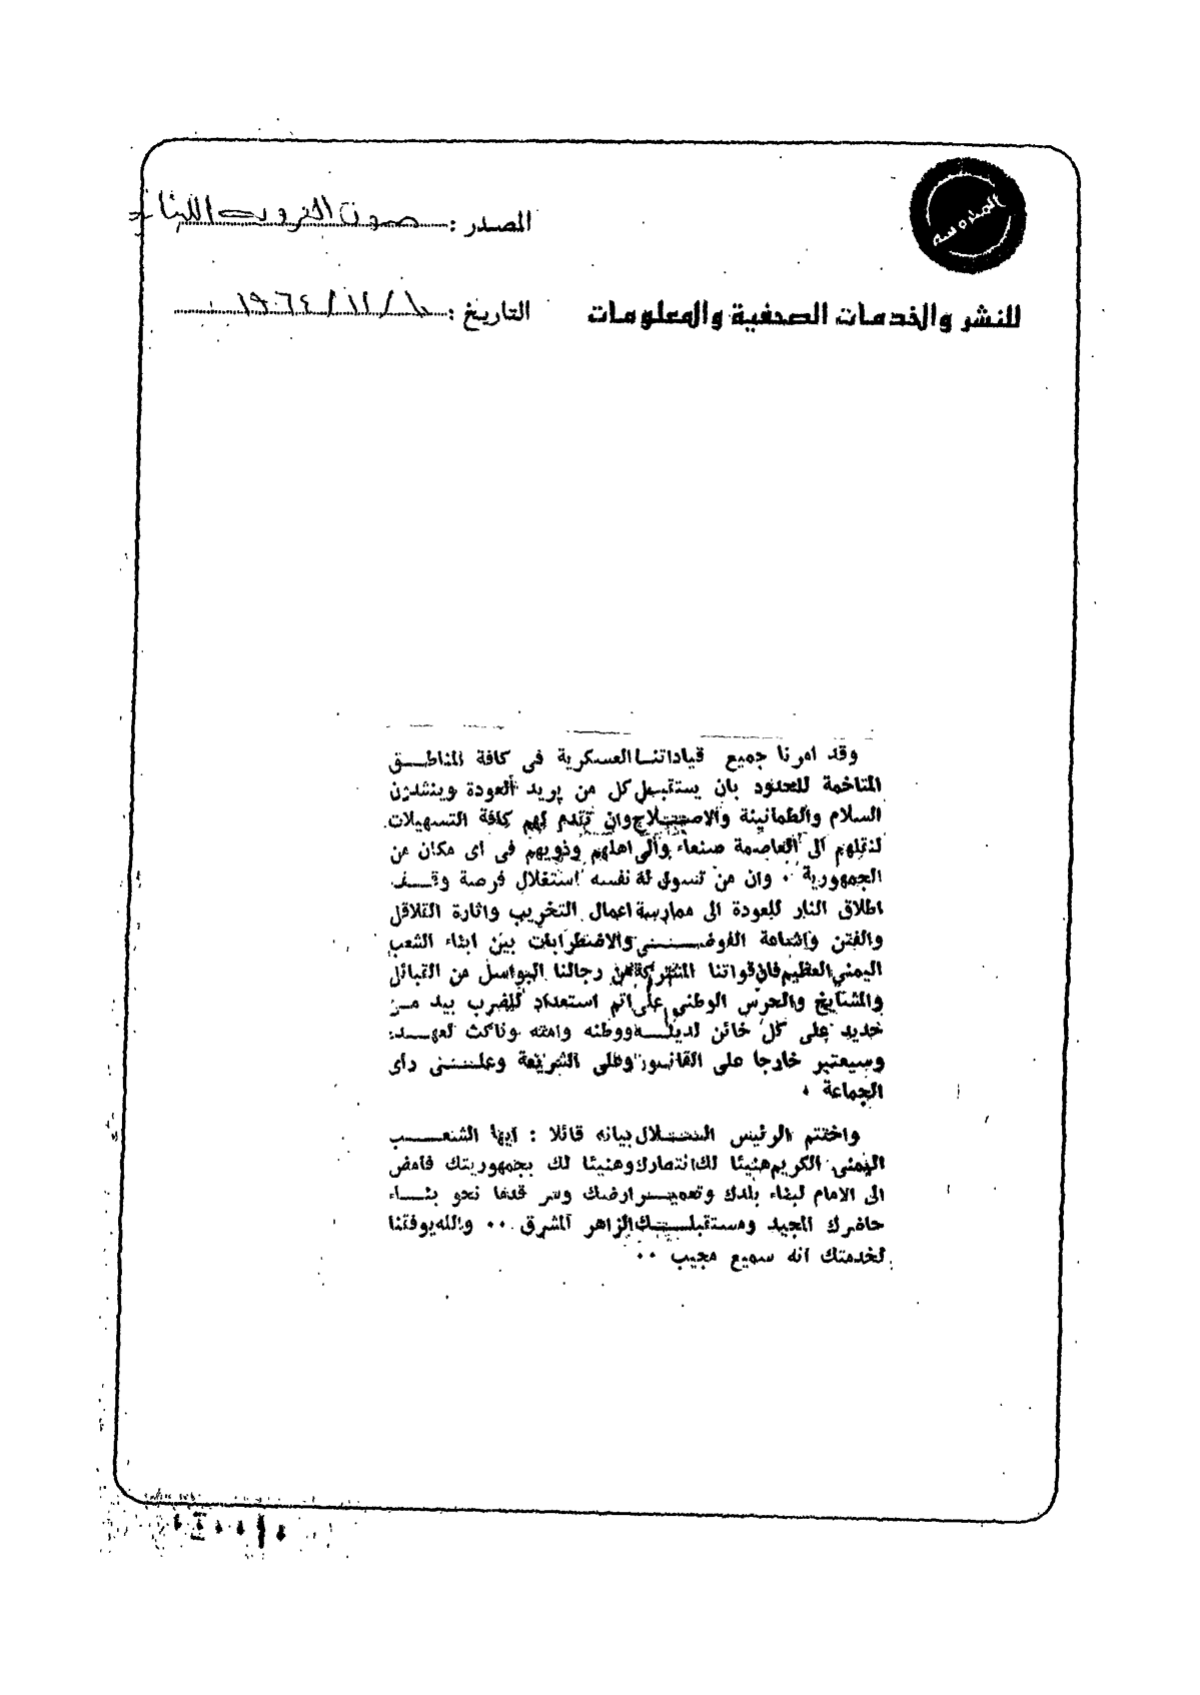 المصدر : صوت العروبة اللبنانية
للنشر والخدمات الصحفية والمعلومات
التاريخ : ١٠ / ١١ / ١٩٦٤
وقد امرنا جميع قياداتنا العسكرية فى كافة المناطق
المتاخمة للحدود بان يستقبل كل من يريد العودة وينشدون
السلام والطمانينة والاصلاح وان تقدم لهم كافة التسهيلات
لنقلهم الى العاصمة صنعاء والى اهلهم وذويهم فى اى مكان من
الجمهورية ٠ وان من تسول له نفسه استغلال فرصة وقف
اطلاق النار للعودة الى ممارسة اعمال التخريب واثارة القلاقل
والفتن واشاعة الفوضى والاضطرابات بين ابناء الشعب
اليمني العظيم فان قواتنا المشتركة من رجالنا البواسل من القبائل
والمشايخ والحرس الوطني على اتم استعداد للضرب بيد من
حديد على كل خائن لدينه ووطنه وامته وناكث لعهده
وسيعتبر خارجا على القانون وعلى الشريعة وعلى راى
الجماعة ٠
واختتم الرئيس السلال بيانه قائلا : ايها الشعب
اليمنى الكريم هنيئا لك انتصارك وهنيئا لك بجمهوريتك فامض
الى الامام لبناء بلدك وتعمير ارضك وسر قدما نحو بناء
حاضرك المجيد ومستقبلك الزاهر المشرق ٠٠ والله يوفقنا
لخدمتك انه سميع مجيب ٠٠